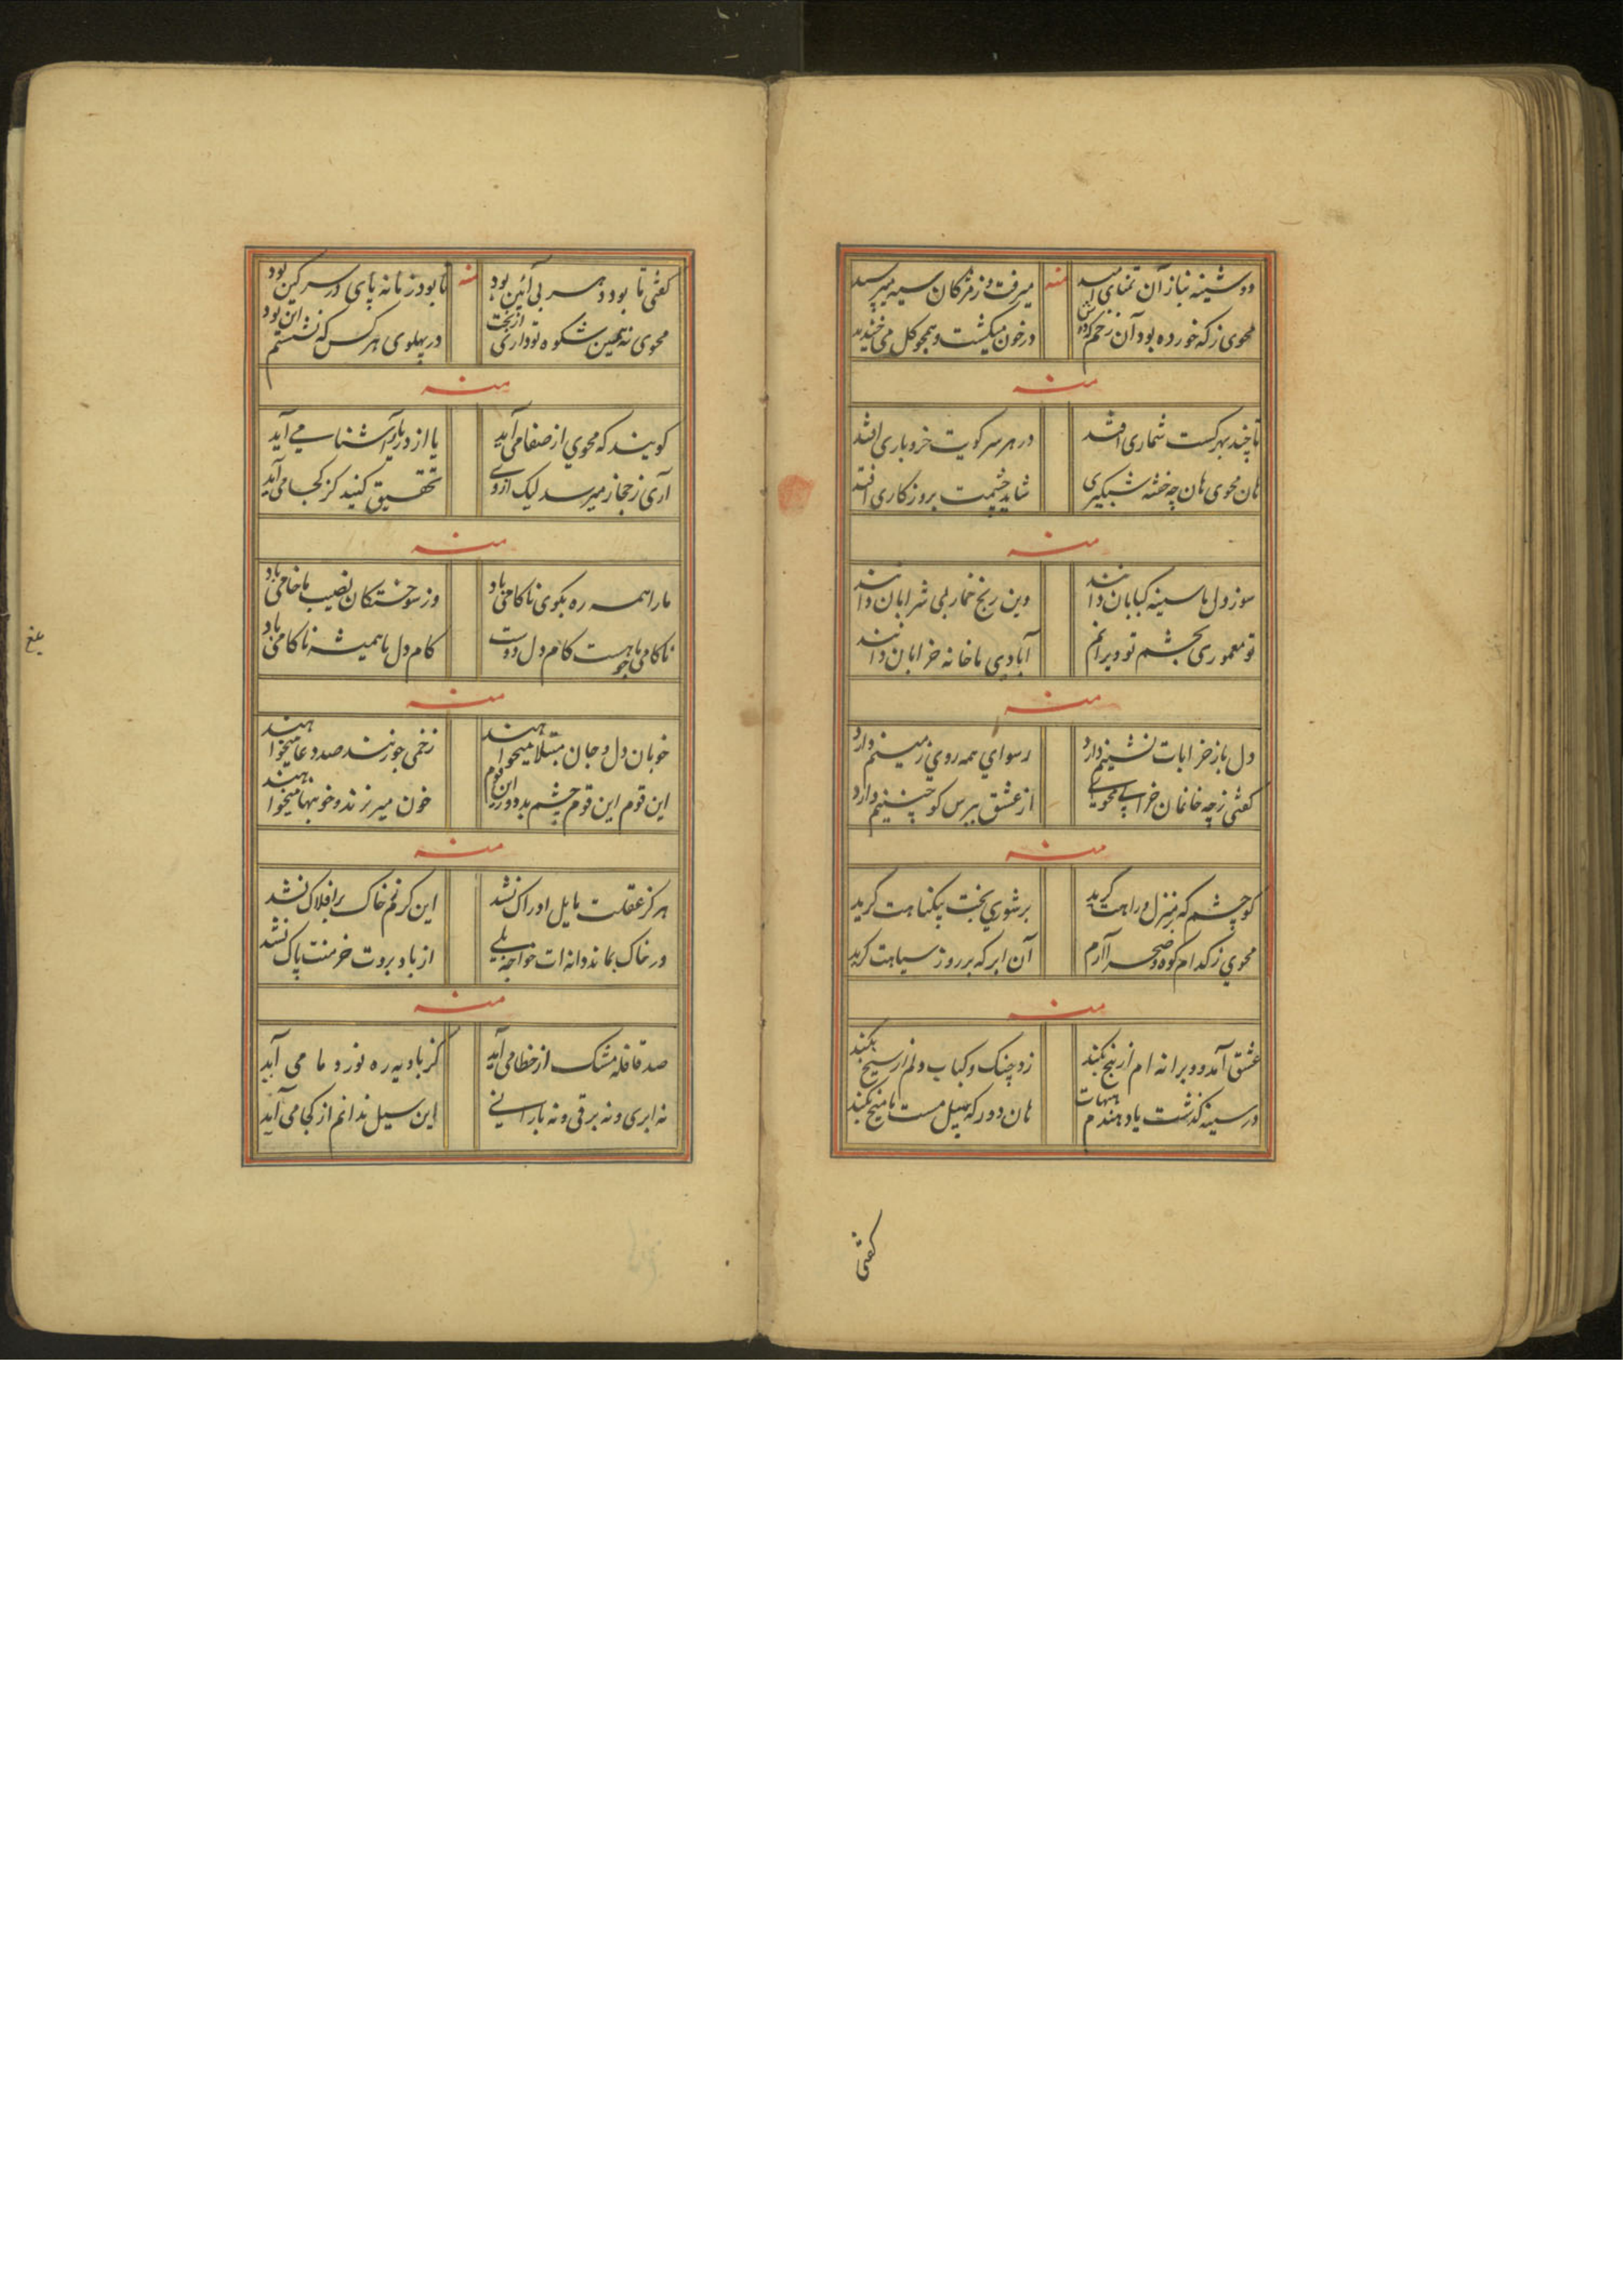 دوشینه بناز آن تمنای امید
منه
میرفت وز مژکان سیه میپرسید
محوی ز که خورده بود آن زخم کزان
در خون میکشت و همچو کل می خندید
منه
تا چند بهر کست شماری افتد
در هر سر کویت خر و باری افتد
هان محوی هان چه خفتهٔ شبکیری
شاید چشمت بروزکاری افتد
منه
سوز دل ما سینه کبابان دانند
وین رنج خمار بی شرابان دانند
تو معموری بچشم تو ویرانم
آبادی ما خانه خرابان دانند
منه
دل باز خرابات نشینم دارد
رسوای همه روی زمینم دارد
کفتی ز چه خانمان خرابی محوی
از عشق بپرس کو چنینم دارد
منه
کو چشم که بر منزل و راهت کرید
بر شوری بخت بیکناهت کرید
محوی ز کدام کوه و صحرا آرم
آن ابر که بر روز سیاهت کرید
منه
عشق آمد و ویرانه ام از بیخ بکند
زد چنک و کباب دلم از سیخ بکند
در سینه کذشت یاد هندم هیهات
هان دور که پیل مست تا میخ بکند
کفتی
کفتی تا بود دهر بی آئین بود
منه
تا بود زمانه پای در سر کین بود
محوی نه همین شکوه تو داری از بخت
در پهلوی هر کس که نشستم این بود
منه
کویند که محوی از صفا می آید
یا از در یار آشنا می آید
آری ز حجاز میرسد لیک ازوی
تحقیق کنید کز کجا می آید
منه
ما را همه ره بکوی ناکامی باد
وز سوختکان نصیب ما خامی باد
ناکامی ما چو هست کام دل دوست
کام دل ما همیشه ناکامی باد
منه
خوبان دل و جان مبتلا میخواهند
زخمی چو زنند صد دعا میخواهند
این قوم این قوم چشم بد دور این قوم
خون میریزند و خونبها میخواهند
منه
هرکز عقلت مایل ادراک نشد
این کرنم خاک بر افلاک نشد
در خاک بماند دانه ات خواجه بلی
از باد بروت خرمنت پاک نشد
منه
صد قافله مشک از خطا می آید
کز بادیه ره نورد ما می آید
نه ابری و نه برقی و نه بارانی
این سیل ندانم از کجا می آید
بلغ